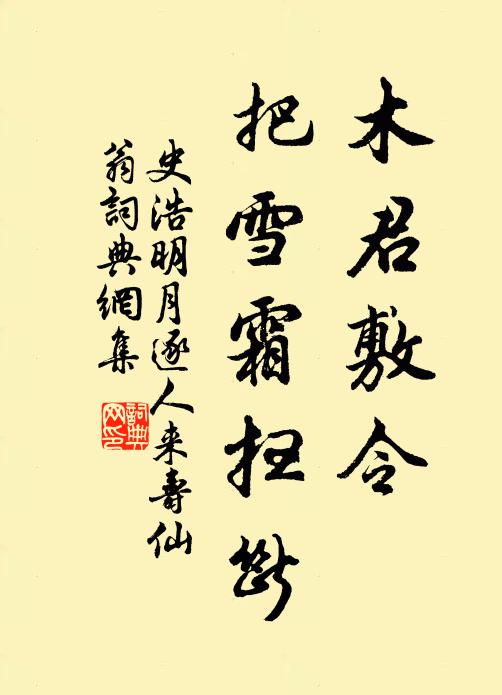 木君敷令
把雪霜扫断
史浩明月逐人来壽仙
翁詞典網集
詞典
网印